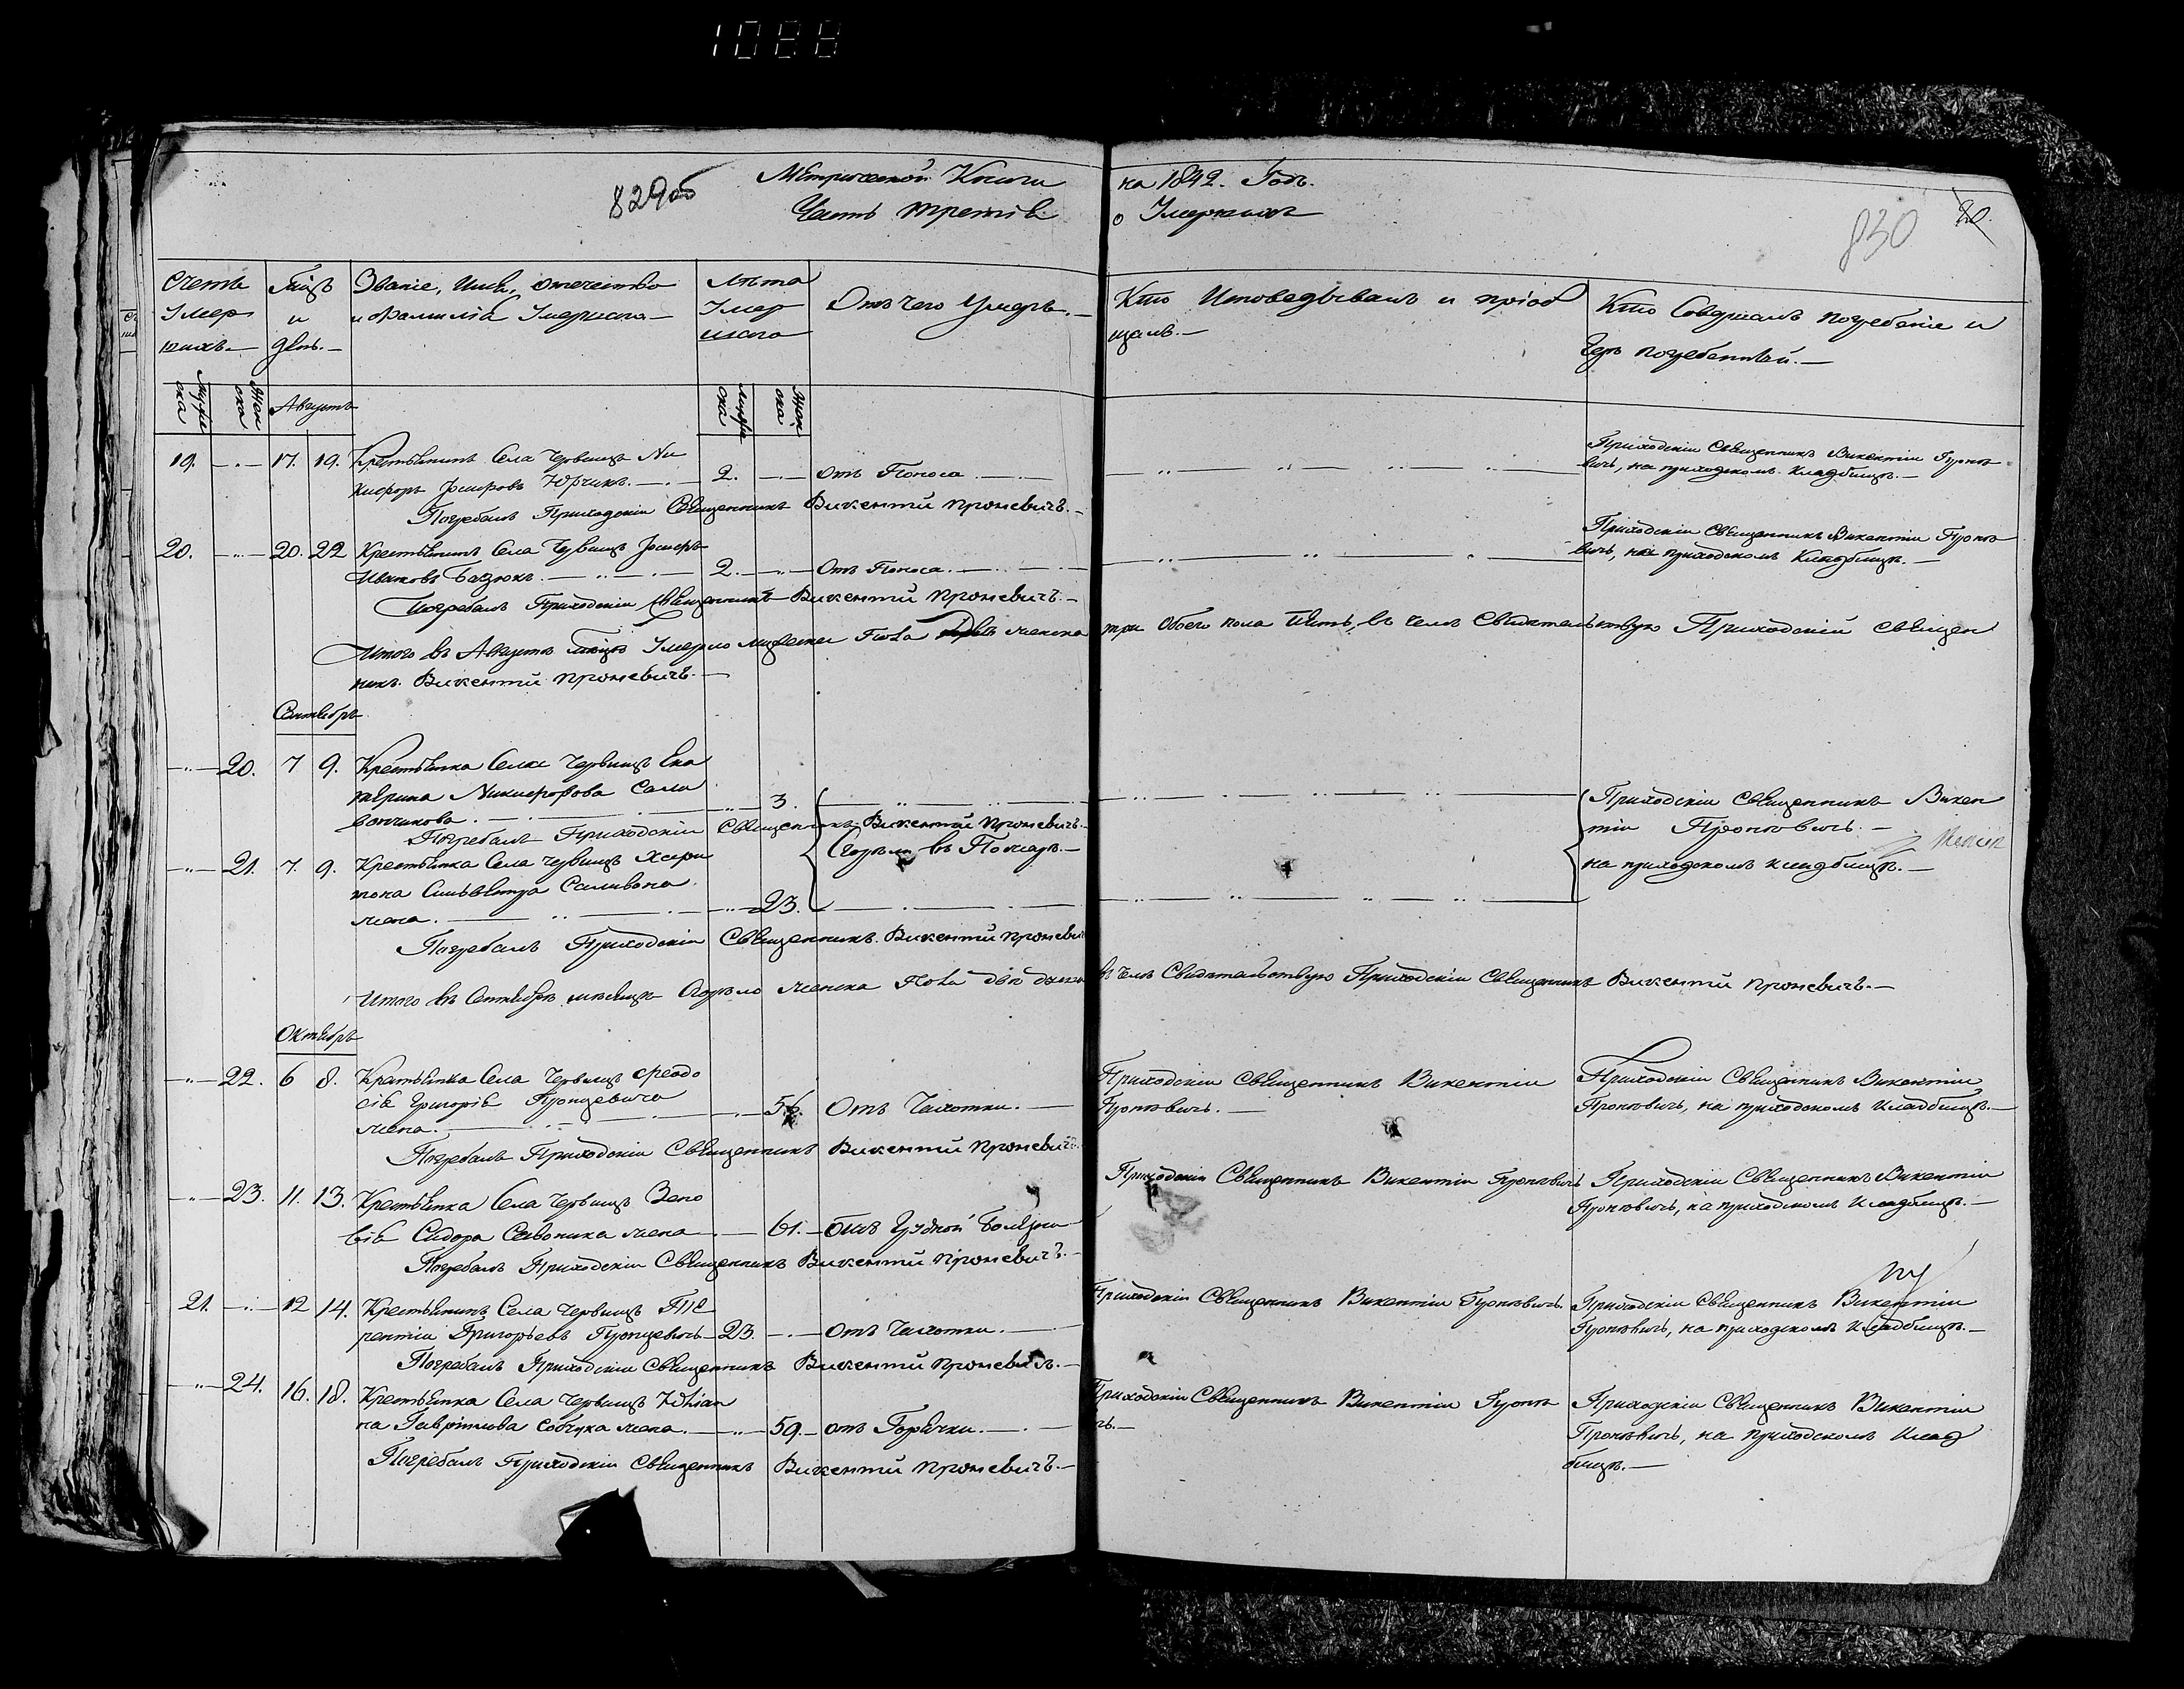 1088
829об
Метрической Книги на 1842. Годъ.
Часть третія о Умершихъ
830
20.
Счетъ Умершихъ.—
Мѣсяцъ и день.—
Званіе, Имя, отечество и Фамилія Умершаго—
Лѣта Умершаго
Отъ чего Умеръ.—
Кто Исповѣдывалъ и пріобщалъ.—
Кто Совершалъ погребеніе и
гдѣ погребенный.—
Мужеска
Женска
Августъ
Мужеска
Женска
19. 17. 19. Крестьянинъ Села Червищъ Ни
кифоръ Іосифовъ Юрчикъ.— 2. Отъ Поноса
Приходскій Священникъ Викентій Проне
вичъ, на приходскомъ кладбищѣ.—
Погребалъ Приходскій Священникъ Викентій Проневичъ.—
20. 20. 22 Крестьянинъ Села Червищъ Іосифъ
Ивановъ 2. Отъ Поноса.
Приходскій Священникъ Викентій Проне
вичъ, на приходскомъ Кладбищѣ.—
Погребалъ Приходскій Священникъ Викентій Проневичъ.—
Итого въ Августѣ мѣсяцѣ Умерло мужеска Пола двѣ женска три Обоего пола пять, въ чемъ Свидѣтельствую Приходскій священ
никъ Викентій Проневичъ.—
Сентябрь
20. 7 9. Крестьянка Села Червищъ Ека
терина Никифорова Сали
вончикова. 3.
Погребалъ Приходскій Священникъ Викентій Проневичъ.
Сгорѣли въ Пожарѣ.—
Приходскій Священникъ Викен
тій Проневичъ.—
на приходскомъ кладбищѣ.—
21. 7. 9. Крестьянка Села Червищъ Хари
тона Сильвестра Саливона
жена. 23.
Погребалъ Приходскій Священникъ Викентій Проневи
Итого въ Сентябрѣ мѣсяцѣ Сгорѣло женска Пола двѣ въ чемъ Свидѣтельствую Приходскій Священникъ Викентій Проневичъ.—
Октябрь
22. 6 8. Крестьянка Села Червищъ Феодо
сія Григорія Пронцевича
жена. 56. Отъ Чахотки.—
Приходскій Священникъ Викентій
Проневичъ.—
Приходскій Священникъ Викентій
Проневичъ, на приходскомъ кладбищѣ.—
Погребалъ Приходскій Священникъ Викентій Проневичъ
23. 11. 13. Крестьянка Села Червищъ Зено
вія Сидора жена 61. отъ Грудной Болезни
Приходскій Священникъ Викентій Проневичъ
Приходскій Священникъ Викентій
Проневичъ, на приходскомъ кладбищѣ.—
Погребалъ Приходскій Священникъ Викентій Проневичъ.—
21. 12 14. Крестьянинъ Села Червищъ Те
рентій Григорьевъ Пронцевичъ 23. Отъ Чахотки.
Приходскій Священникъ Викентій Проневичъ.
Приходскій Священникъ Викентій
Проневичъ, на приходскомъ Кладбищѣ.—
Погребалъ Приходскій Священникъ Викентій Проневичъ.—
24. 16. 18. Крестьянка Села Червищъ Юлиан
на Гаврилова Собчука жена. 59. отъ Горячки.
Приходскій Священникъ Викентій Проневи
чъ.—
Приходскій Священникъ Викентій
Проневичъ, на приходскомъ Клад
бищѣ.—
Погребалъ Приходскій Священникъ Викентій Проневичъ.—